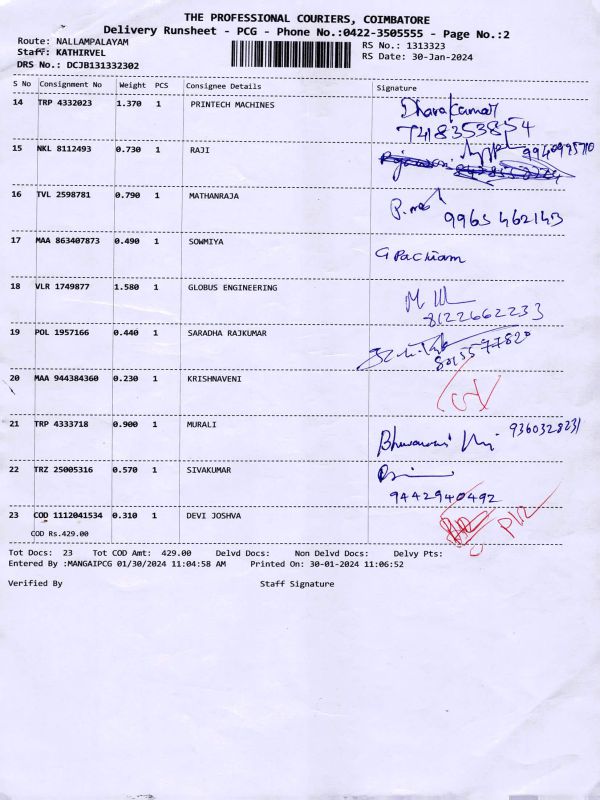 THE PROFESSIONAL COURIERS, COIMBATORE
Delivery Runsheet - PCG - Phone No.:0422-3505555 - Page No.:2
Route: NALLAMPALAYAM
RS No.: 1313323
Staff: KATHIRVEL
RS Date: 30-Jan-2024
DRS No.: DCJB131332302
S No Consignment No Weight PCS Consignee Details Signature
14 TRP 4332023 1.370 1 PRINTECH MACHINES
7418353854
15 NKL 8112493 0.730 1 RAJI
16 TVL 2598781 0.790 1 MATHANRAJA
9965 462143
17 MAA 863407873 0.490 1 SOWMIYA G Pachiam
18 VLR 1749877 1.580 1 GLOBUS ENGINEERING
8122662233
19 POL 1957166 0.440 1 SARADHA RAJKUMAR
8015577820
20 MAA 944384360 0.230 1 KRISHNAVENI
21 TRP 4333718 0.900 1 MURALI 9360328231
22 TRZ 25005316 0.570 1 SIVAKUMAR
9442940492
23 COD 1112041534 0.310 1 DEVI JOSHVA
COD Rs.429.00
Tot Docs: 23 Tot COD Amt: 429.00 Delvd Docs: Non Delvd Docs: Delvy Pts:
Entered By :MANGAIPCG 01/30/2024 11:04:58 AM Printed On: 30-01-2024 11:06:52
Verified By Staff Signature